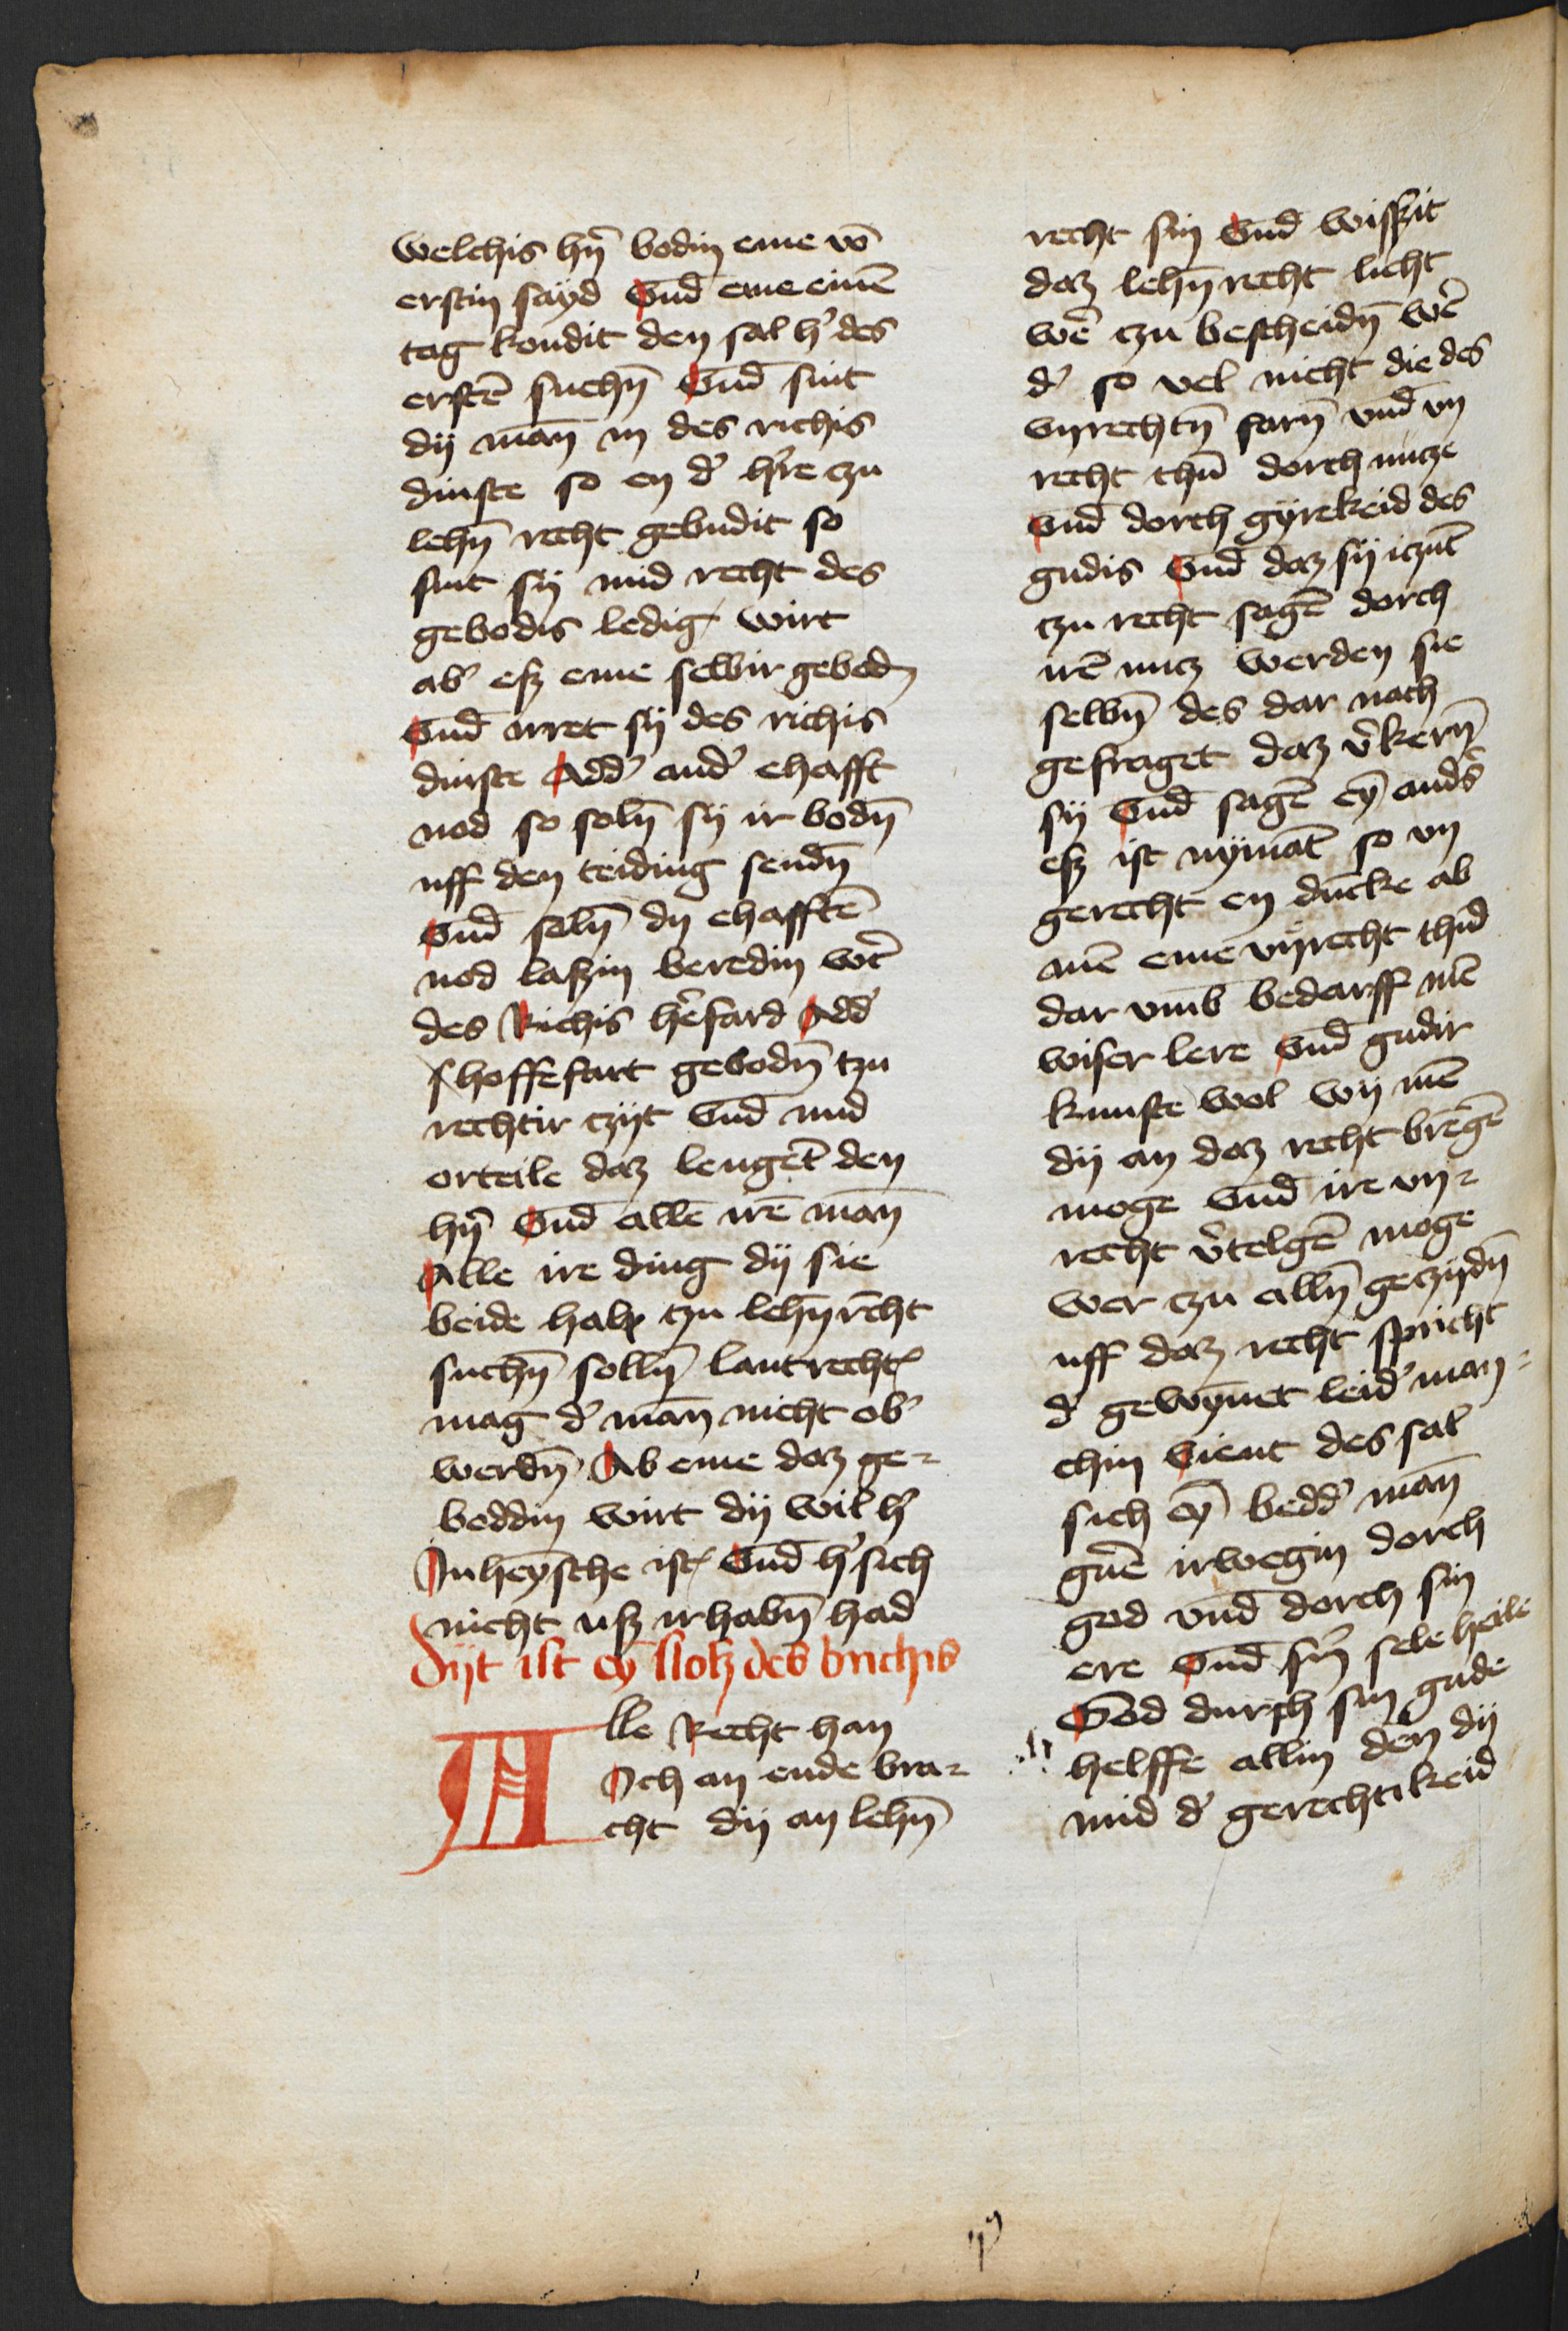 welchis hŋ̄ bodin eme vō
erstin sayd Vnd̄ eme einē
tag kondit den sal h' des
erstē suchn̄ Vnd̄ sint
dij man̄ in des richis
dinste so en d' h're czu
lehn̄ recht gebudit so
sint sij mid recht des
gebodis ledig wirt
ab' esz eme selbir gebodn̄
Vnd̄ irret sij des richis
dinste Add' and' ehafft
nod so soln̄ sij ir bodn̄
uff den teiding sendn̄
Vnd̄ soln̄ dy ehafftē
nod laszin beredin wēr
des Richis hērfard Add'
hoffefart gebodn̄ tzu
rechtir czijt Vnd̄ mid
orteile daz lengēt den
hn̄ Vnd̄ allē irē man̄
Alle ire ding dij sie
beide halp tzu lehn̄recht
suchn̄ solln̄ lantrecht
mag d' man̄ nicht ob'
werdn̄ Ab eme daz ge-
boddin wirt dij wil h'
Inheȳsche ist Vnd̄ h' sich
nicht usz irhabn̄ had
Dijt ist eȳ slosz des buchis
Alle Recht han
Ich an ende bra-
cht dij an lehn̄
recht sin Vnd̄ wiszit
daz lehn̄recht licht
wē czu bescheidn̄ wē
d' so vel nicht die des
vnrechtn̄ farn̄ vnd̄ vn
recht thū dorch nucze
Vnd̄ dorch gyrekeid des
gudis Vnd̄ daz sij iczūt
czu recht sagē dorch
irē nucz werden sie
selbn̄ des dar noch
gefraget daz v'kern̄
sij Vnd̄ sagē eȳ ands'
esz ist nymāt so vn
gerecht en duncke ab
mē eme vnrecht thud
dar vmb bedarff mē
wiser lere Vnd̄ gudir
kunste wol wij mē
dij an daz recht brēgē
moge Vnd̄ ire vn-
recht v'telgē moge
wer czu alln̄ geczijdn̄
uff daz recht spricht
d' gewȳnet leid' man-
chin vient des sal
sich eȳ bedd' man̄
gnē irwegin dorch
god vnd̄ dorch sin
ere Vnd̄ sin̄ sele heile
God durch sin gude
helffe allin dēn dij
mid d' gerechtikeid